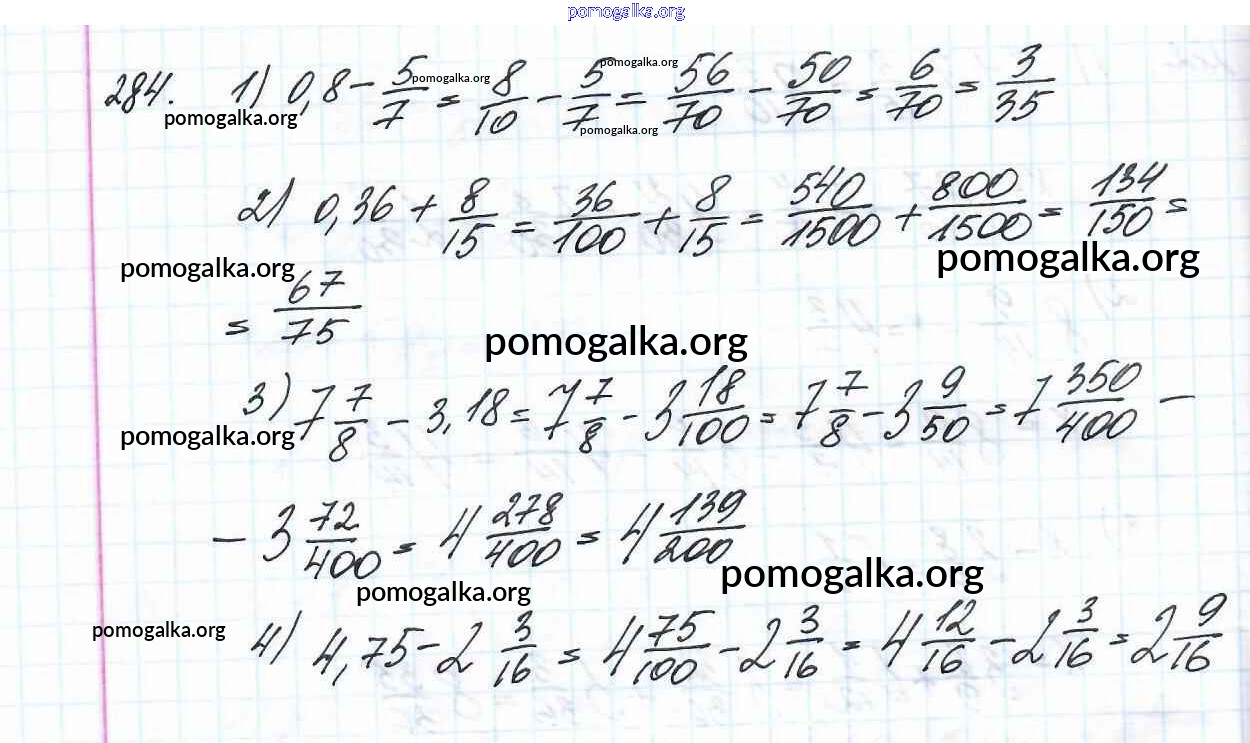 pomogalka.org
284. 1) 0,8 - 5/7 = 8/10 - 5/7 = 56/70 - 50/70 = 6/70 = 3/35
pomogalka.org pomogalka.org pomogalka.org pomogalka.org
2) 0,36 + 8/15 = 36/100 + 8/15 = 540/1500 + 800/1500 = 134/150 =
pomogalka.org pomogalka.org
= 67/75
pomogalka.org
3) 7 7/8 - 3,18 = 7 7/8 - 3 18/100 = 7 7/8 - 3 9/50 = 7 350/400 -
pomogalka.org
- 3 72/400 = 4 278/400 = 4 139/200
pomogalka.org pomogalka.org
4) 4,75 - 2 3/16 = 4 75/100 - 2 3/16 = 4 12/16 - 2 3/16 = 2 9/16
pomogalka.org